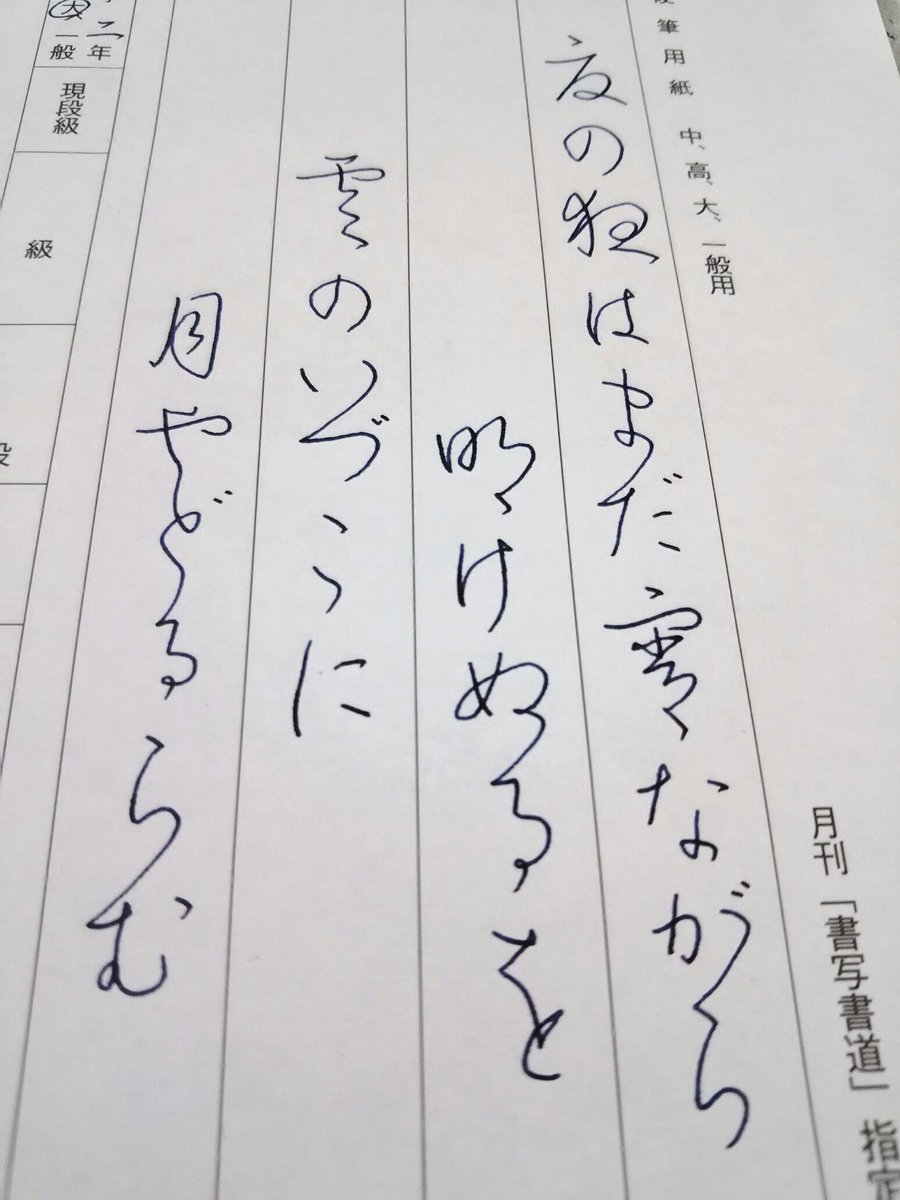 月刊「書写書道」指定
筆用紙 中、高、大、一般用
夏の夜はまだ宵ながら
明けぬるを
雲のいづこに
月やどるらむ
二年
大 一般
現段級
級